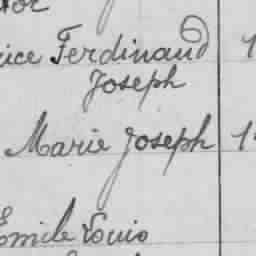 Ferdinand
Joseph
Marie Joseph
Emile Louis